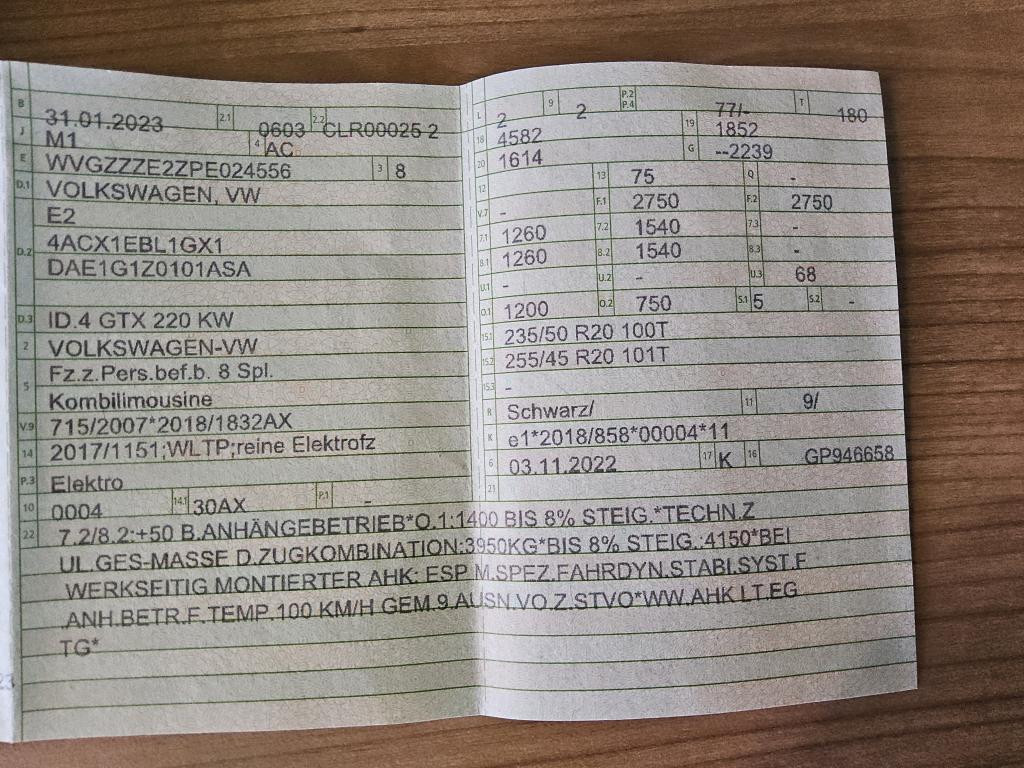 B 31.01.2023 2.1 0603 2.2 CLR00025 2
J M1 4 AC
E WVGZZZE2ZPE024556 3 8
D.1 VOLKSWAGEN, VW
E2
D.2 4ACX1EBL1GX1
DAE1G1Z0101ASA
D.3 ID.4 GTX 220 KW
2 VOLKSWAGEN-VW
5 Fz.z.Pers.bef.b. 8 Spl.
Kombilimousine
V.9 715/2007*2018/1832AX
14 2017/1151;WLTP;reine Elektrofz
P.3 Elektro
10 0004 14.1 30AX P.1 -
L 2 9 2 P.2 P.4 77/- T 180
18 4582 19 1852
20 1614 G --2239
12 13 75 Q -
V.7 - F.1 2750 F.2 2750
7.1 1260 7.2 1540 7.3 -
8.1 1260 8.2 1540 8.3 -
U.1 - U.2 - U.3 68
O.1 1200 O.2 750 S.1 5 S.2 -
15.1 235/50 R20 100T
15.2 255/45 R20 101T
15.3 -
R Schwarz/ 11 9/
K e1*2018/858*00004*11
6 03.11.2022 17 K 16 GP946658
21
22 7.2/8.2:+50 B.ANHÄNGEBETRIEB*O.1:1400 BIS 8% STEIG.*TECHN.Z
UL.GES-MASSE D.ZUGKOMBINATION:3950KG*BIS 8% STEIG.:4150*BEI
WERKSEITIG MONTIERTER AHK: ESP M.SPEZ.FAHRDYN.STABI.SYST.F
.ANH.BETR.F.TEMP.100 KM/H GEM.9.AUSN.VO.Z.STVO*WW.AHK LT.EG
TG*